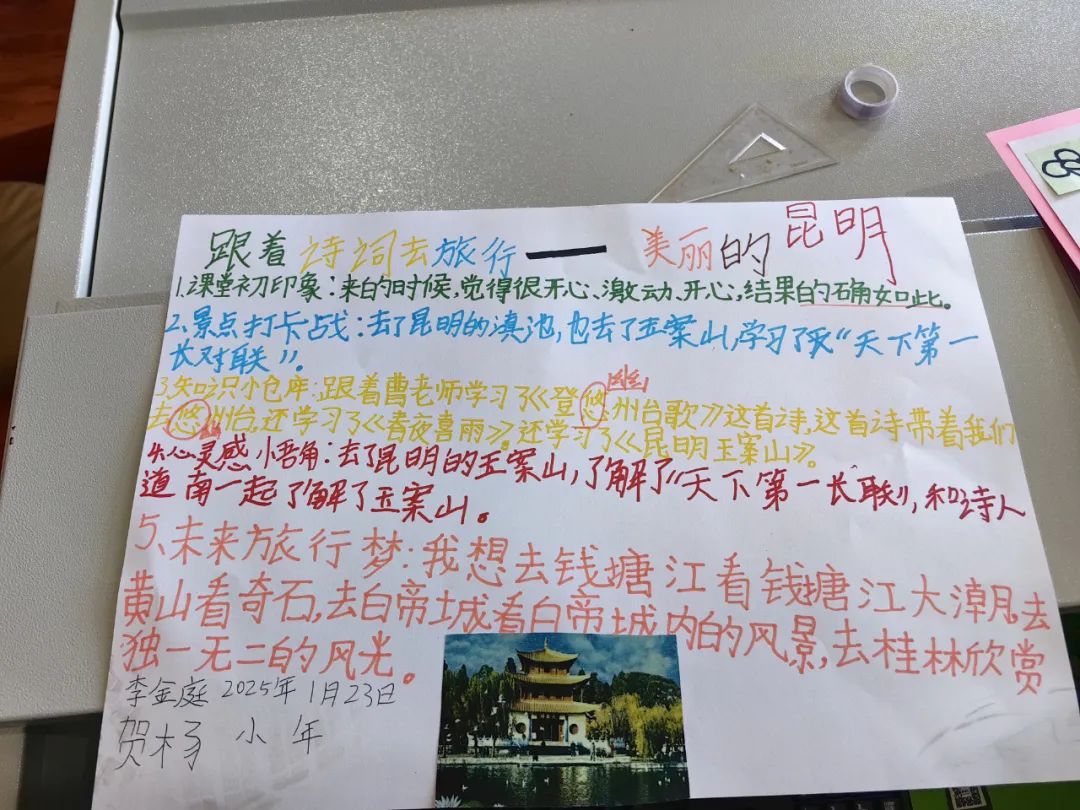 跟着诗词去旅行——美丽的昆明
1.课堂初印象：来的时候,觉得很开心、激动、开心,结果的确如此。
2、景点打卡战：去了昆明的滇池,也去了玉案山,学习了天“天下第一
长对联”。
幽
3.知识小仓库:跟着曹老师学习了《登悠州台歌》这首诗,这首诗带着我们
去悠州台,还学习了《春夜喜雨》。还学习了《昆明玉案山》。
4.心灵感小悟角:去了昆明的玉案山,了解了“天下第一长联”,和诗人
道南一起了解了玉案山。
5、未来旅行梦:我想去钱塘江看钱塘江大潮,去
黄山看奇石,去白帝城看白帝城内的风景,去桂林欣赏
独一无二的风光。
李金庭 2025年1月23日
贺杨 小年